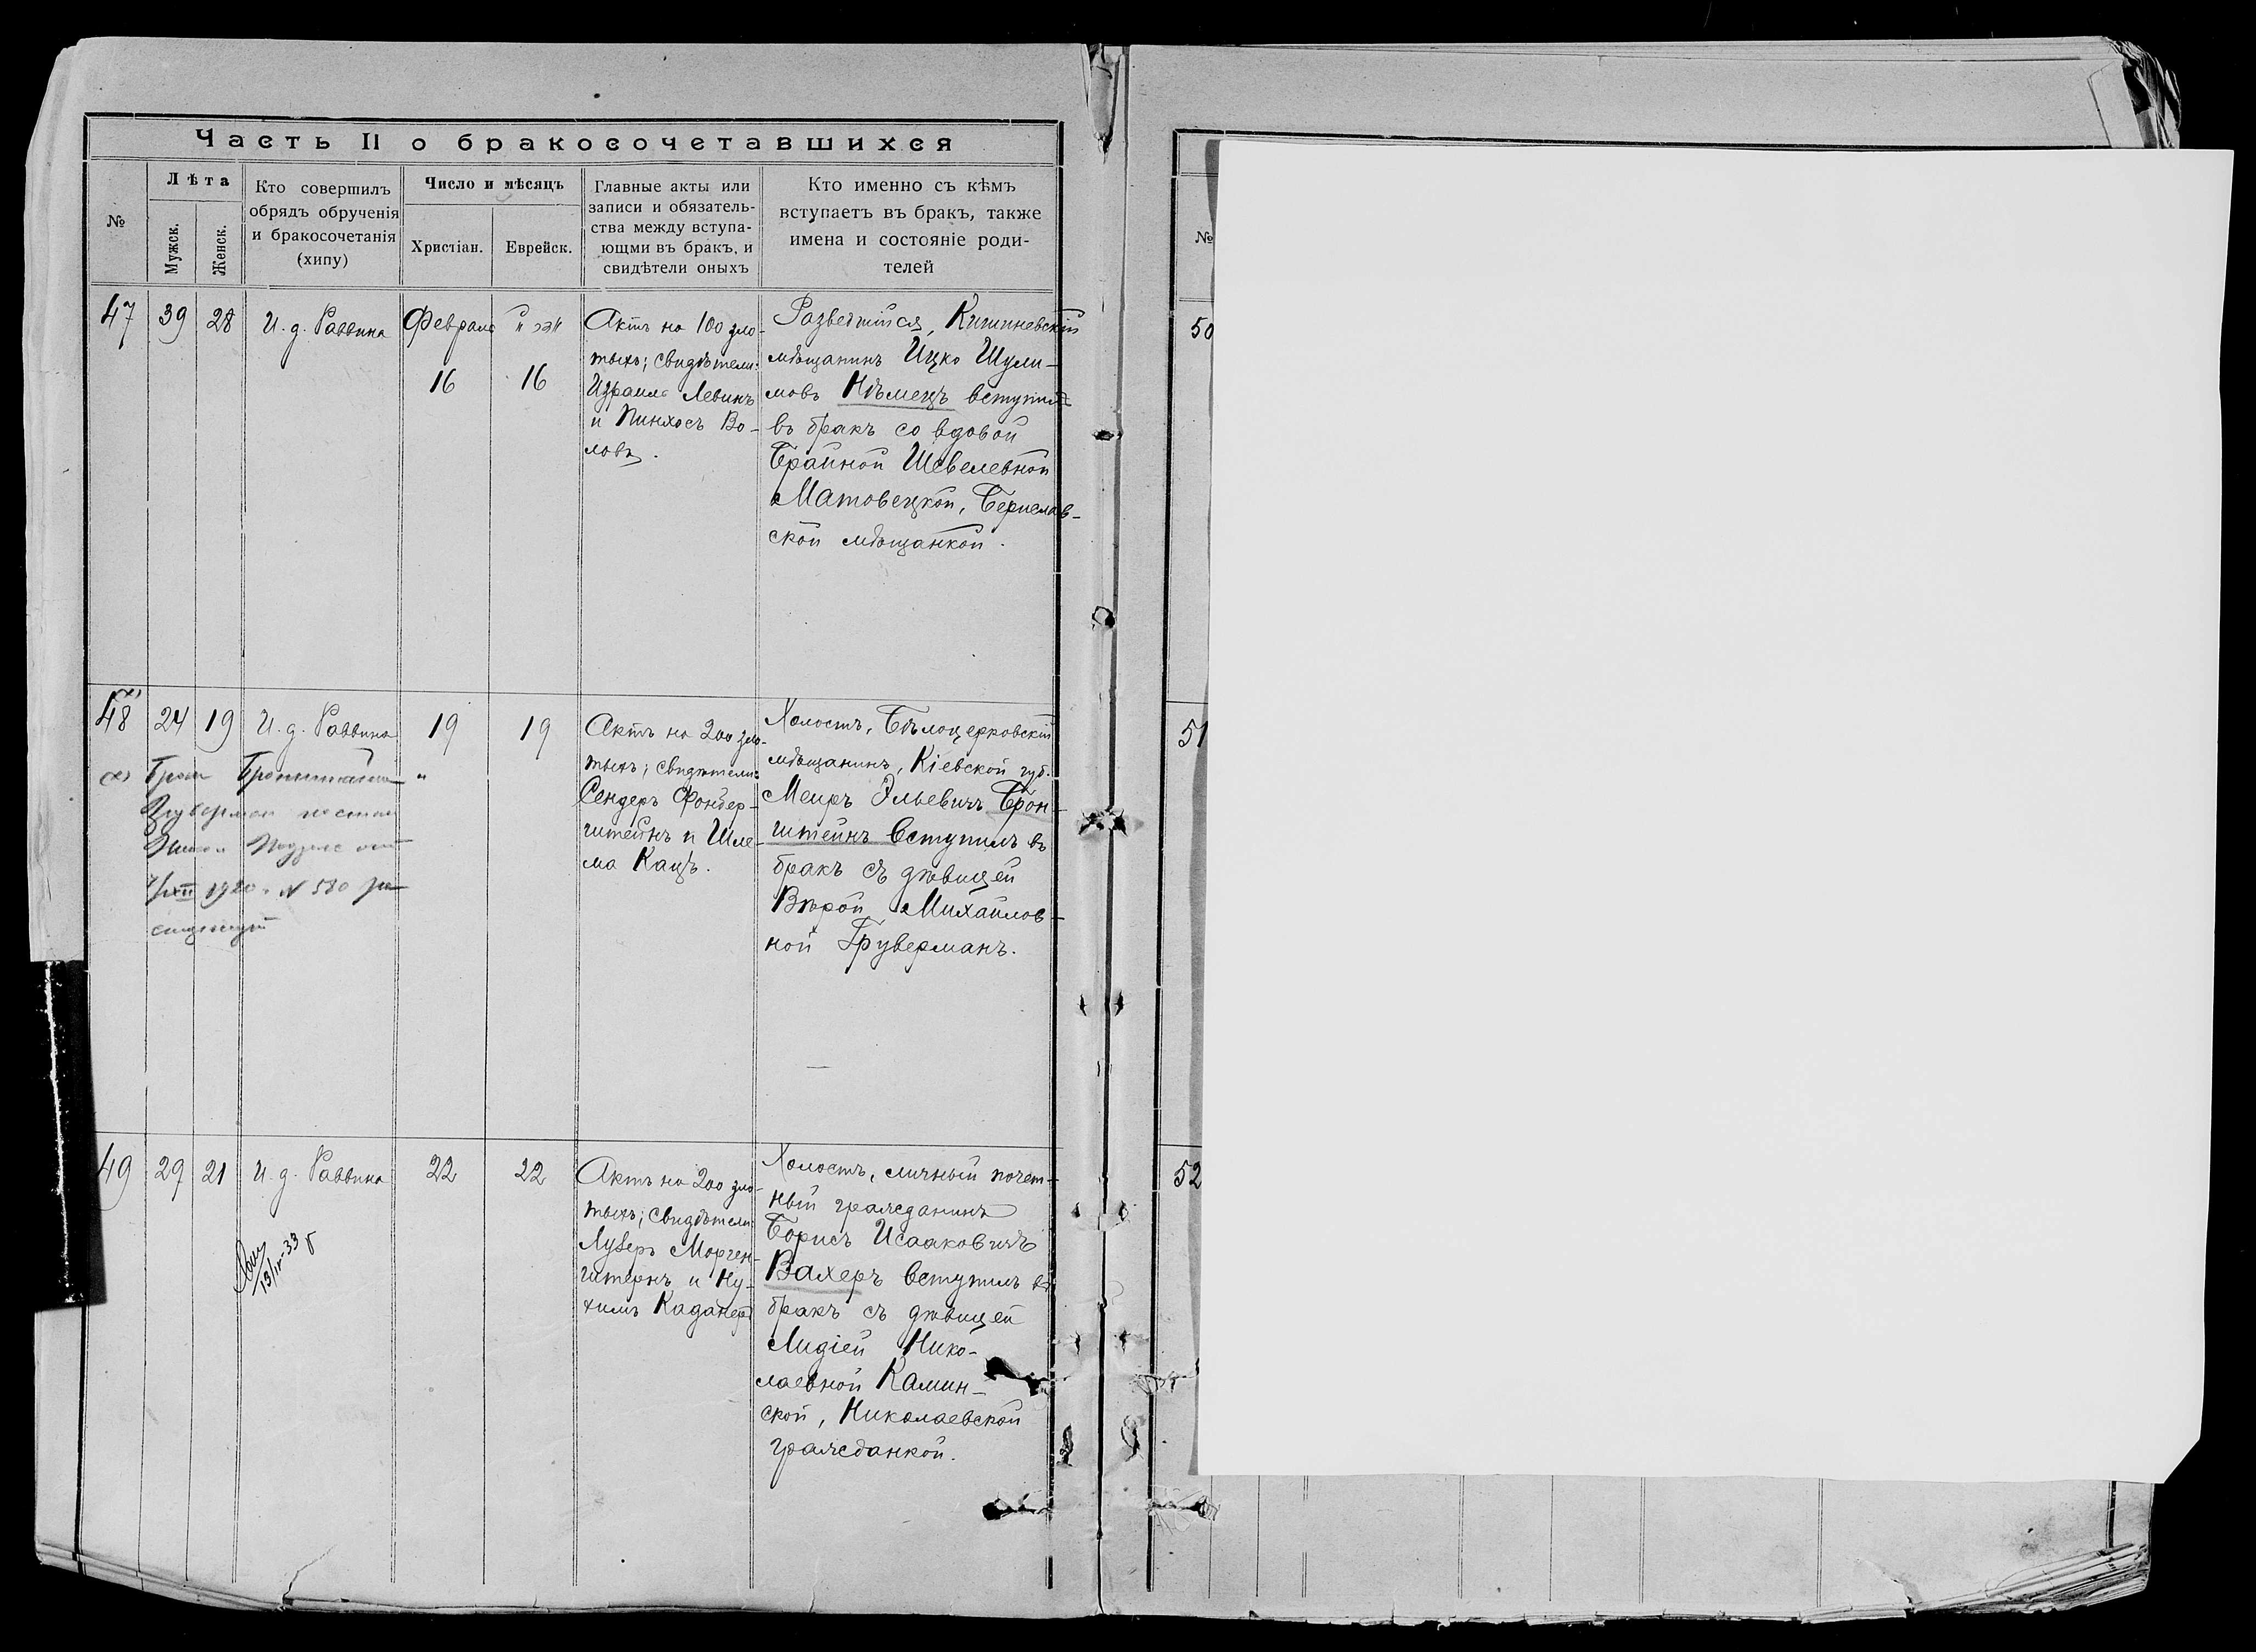 Часть II о бракосочетавшихся
№
Лѣта
Мужск.
Женск.
Кто совершилъ
обрядъ обрученія
и бракосочетанія
(хипу)
Число и мѣсяцъ
Христіан.
Еврейск.
Главные акты или
записи и обязатель-
ства между вступа-
ющми въ бракъ, и
свидѣтели оныхъ
Кто именно съ кѣмъ
вступаетъ въ бракъ, также
имена и состояніе роди-
телей
47
39
28
И. д. Раввина
Февраля
16
16
Актъ на 100 зло-
тыхъ; свидѣтели:
Израиль Левинъ
и Пинхосъ Во-
ловъ.
Разведшійся, Кишиневскій
мѣщанинъ Ицко Шули-
мовъ Нѣмецъ вступилъ
въ бракъ со вдовой
Брайной Шевелевной
Матовецкой, Берислав-
ской мѣщанкой.
48
24
19
И. д. Раввина
19
19
Актъ на 200 зло-
тыхъ; свидѣтели:
Сендеръ Фонбер-
штейнъ и Шле-
ма Кацъ.
Холостъ, Бѣлоцерковскій
мѣщанинъ, Кіевской губ.
Меиръ Эльевичъ Брон-
штейнъ вступилъ въ
бракъ съ дѣвицей
Вѣрой Михайлов-
ной Груверманъ.
Брак Бронштейна
1920 № 580
49
29
21
И. д. Раввина
22
22
Актъ на 200 зло-
тыхъ; свидѣтели:
Луберъ Морген-
штернъ и Ну-
химъ Каданеръ
Холостъ, личный почет-
ный гражданинъ
Борисъ Исааковичъ
Вахеръ вступилъ въ
бракъ съ дѣвицей
Лидіей Нико-
лаевной Камин-
ской, Николаевской
гражданкой.
13/IV-33
№
50
51
52